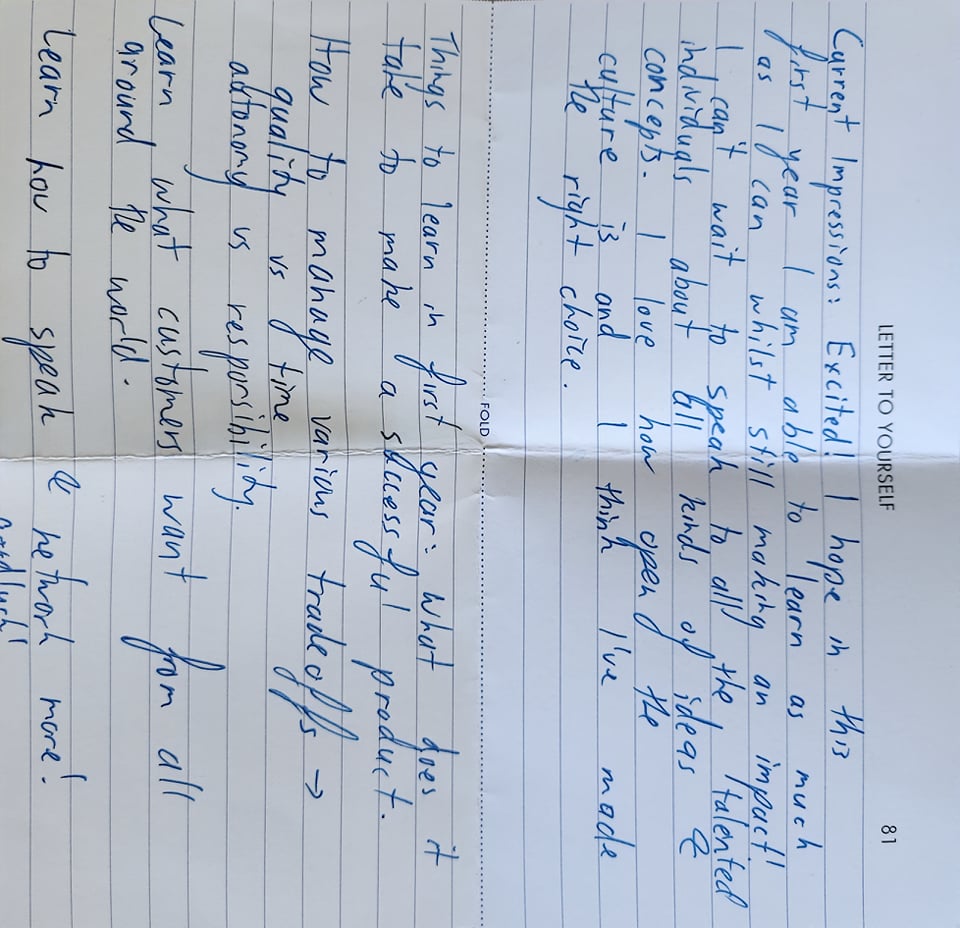 LETTER TO YOURSELF 81
Current Impressions: Excited! I hope in this
first year I am able to learn as much
as I can whilst still making an impact!
I can't wait to speak to all the talented
individuals about all kinds of ideas &
concepts. I love how open the
culture is and I think I've made
the right choice.
FOLD
Things to learn in first year: What does it
take to make a successful product.
How to manage various tradeoffs →
quality vs time
autonomy vs responsibility.
Learn what customers want from all
around the world.
Learn how to speak & network more!
Goodluck!